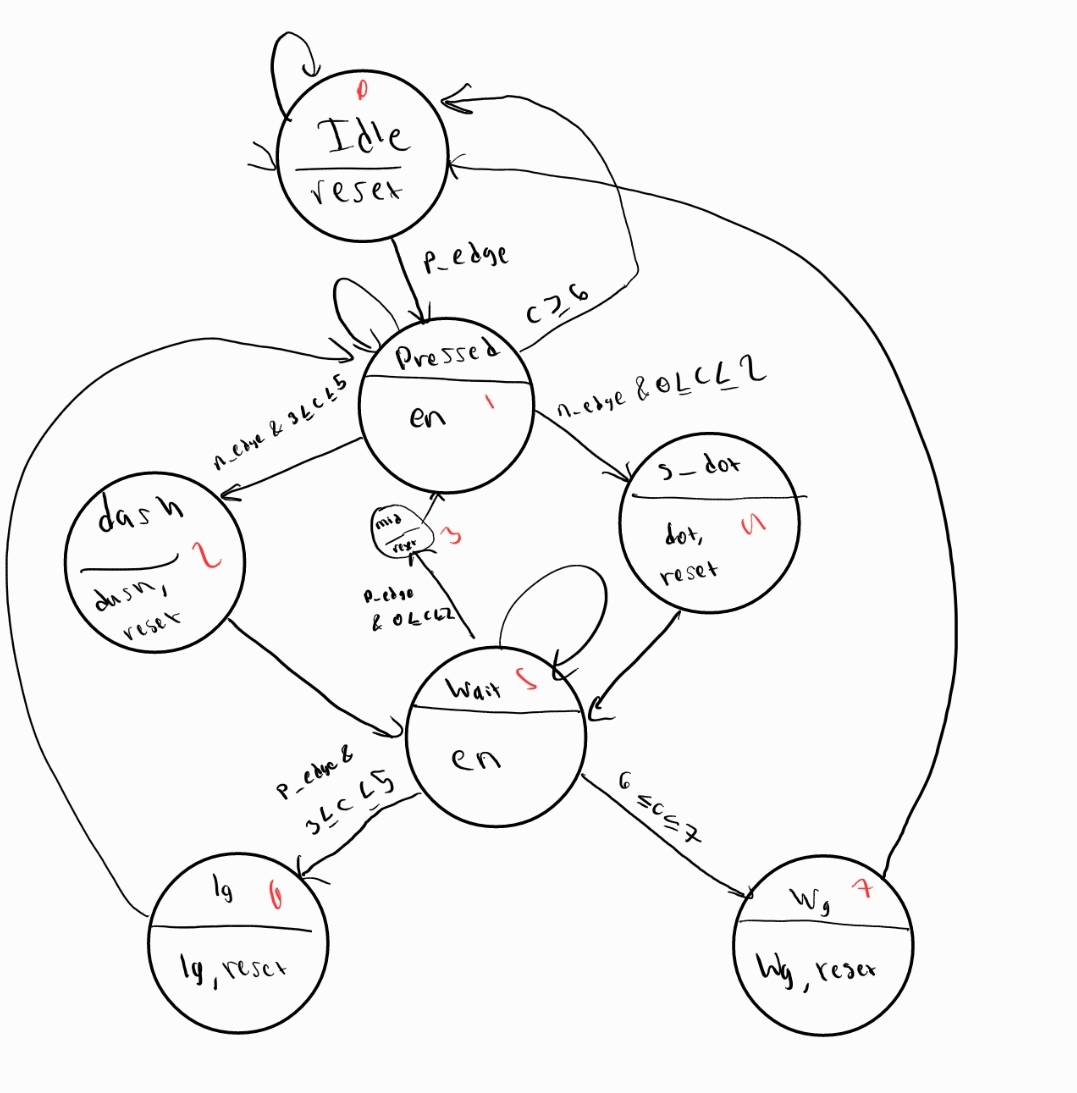 0
Idle
reset
p_edge
c ≥ 6
Pressed
en 1
n_edge & 3 ≤ c ≤ 5
n_edge & 0 ≤ c ≤ 2
dash
2
dash,
reset
s_dot
dot, 4
reset
mid
reset
3
p_edge
& 0 ≤ c ≤ 2
Wait 5
en
p_edge &
3 ≤ c ≤ 5
6 ≤ c ≤ 7
lg 6
lg, reset
Wg 7
Wg, reset